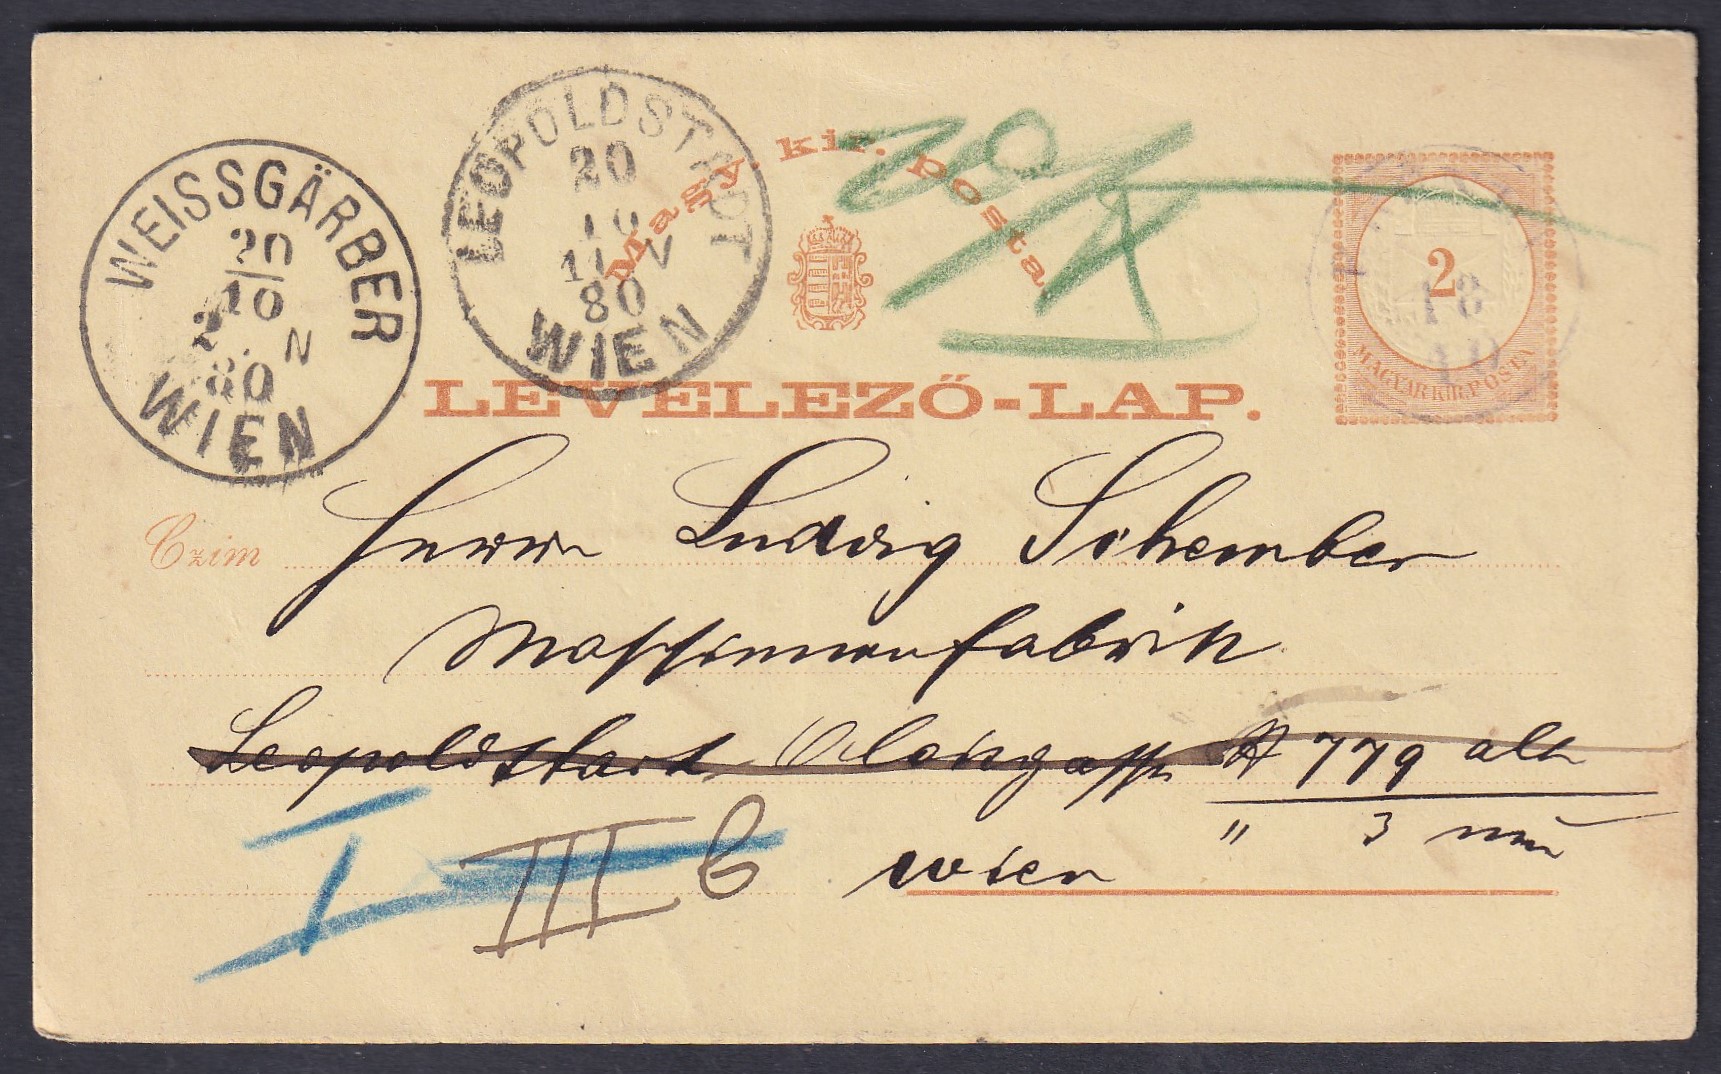 WEISSGÄRBER
20
10
2 N
80
WIEN
LEOPOLDSTADT
20
10
11 V
80
WIEN
Magy. kir. posta
20/X
2
18
10
MAGYAR KIR. POSTA
LEVELEZŐ-LAP.
Czim
Herrn Ludwig Schember
Maschinenfabrik
Leopoldstadt 779 alt
" 3 neu
I III 6
Wien